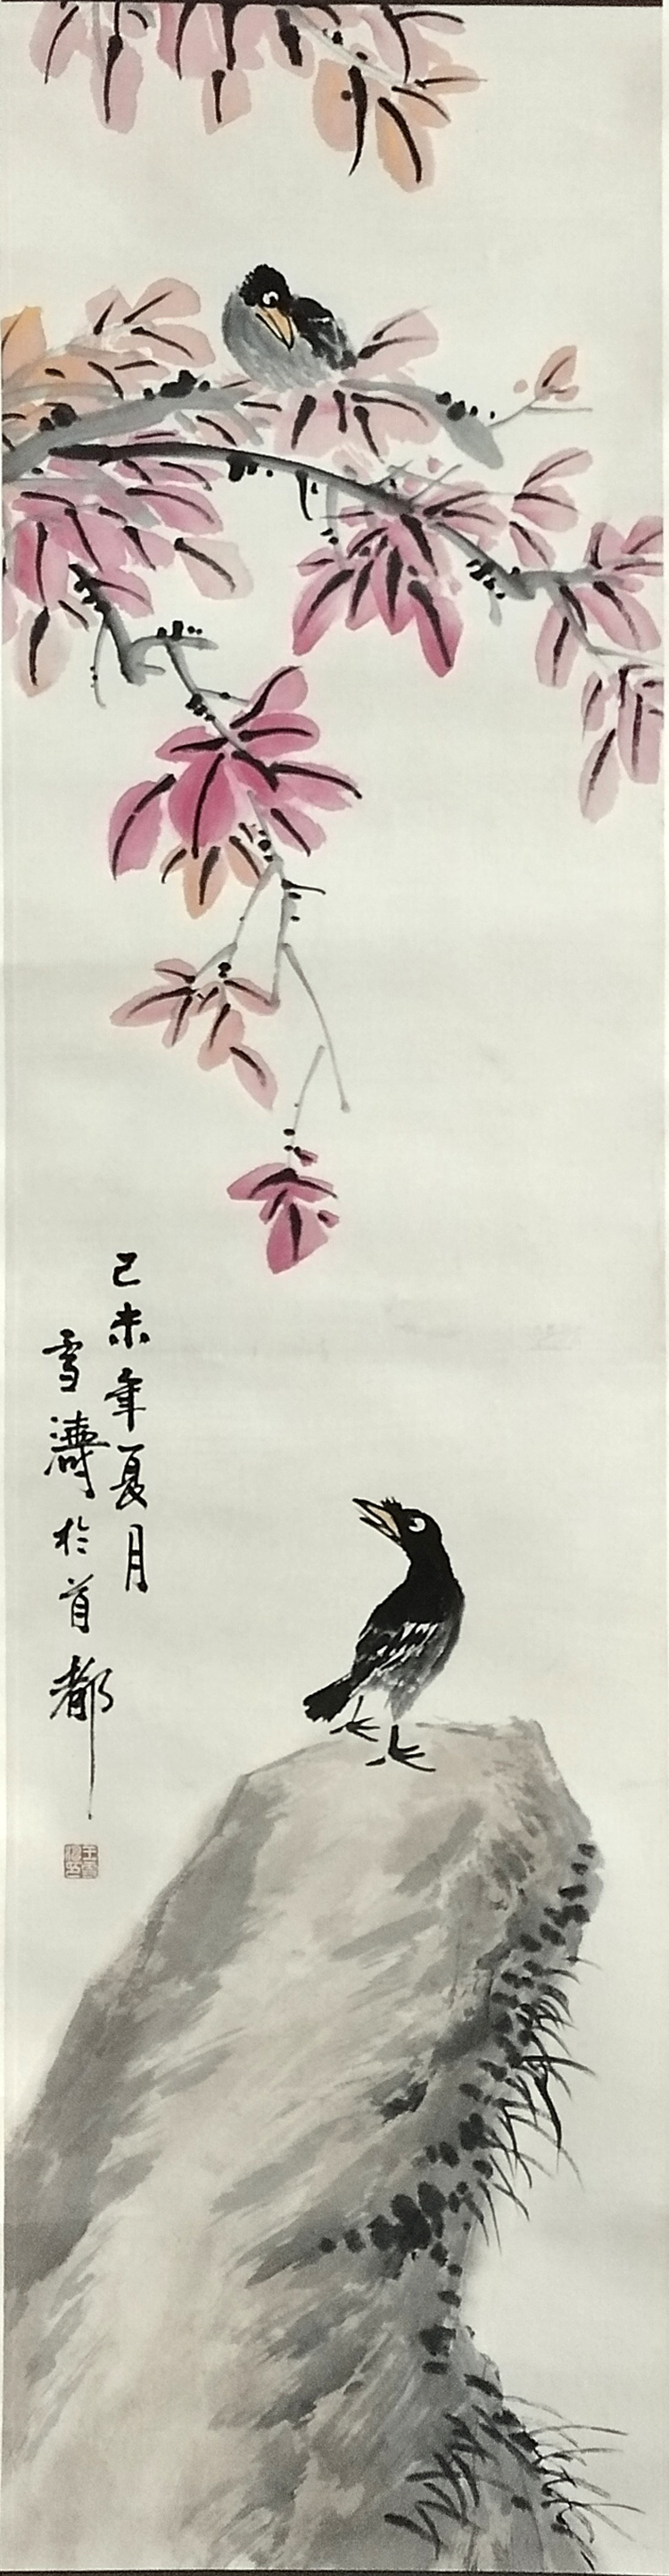 己未年夏月
雪濤於首都